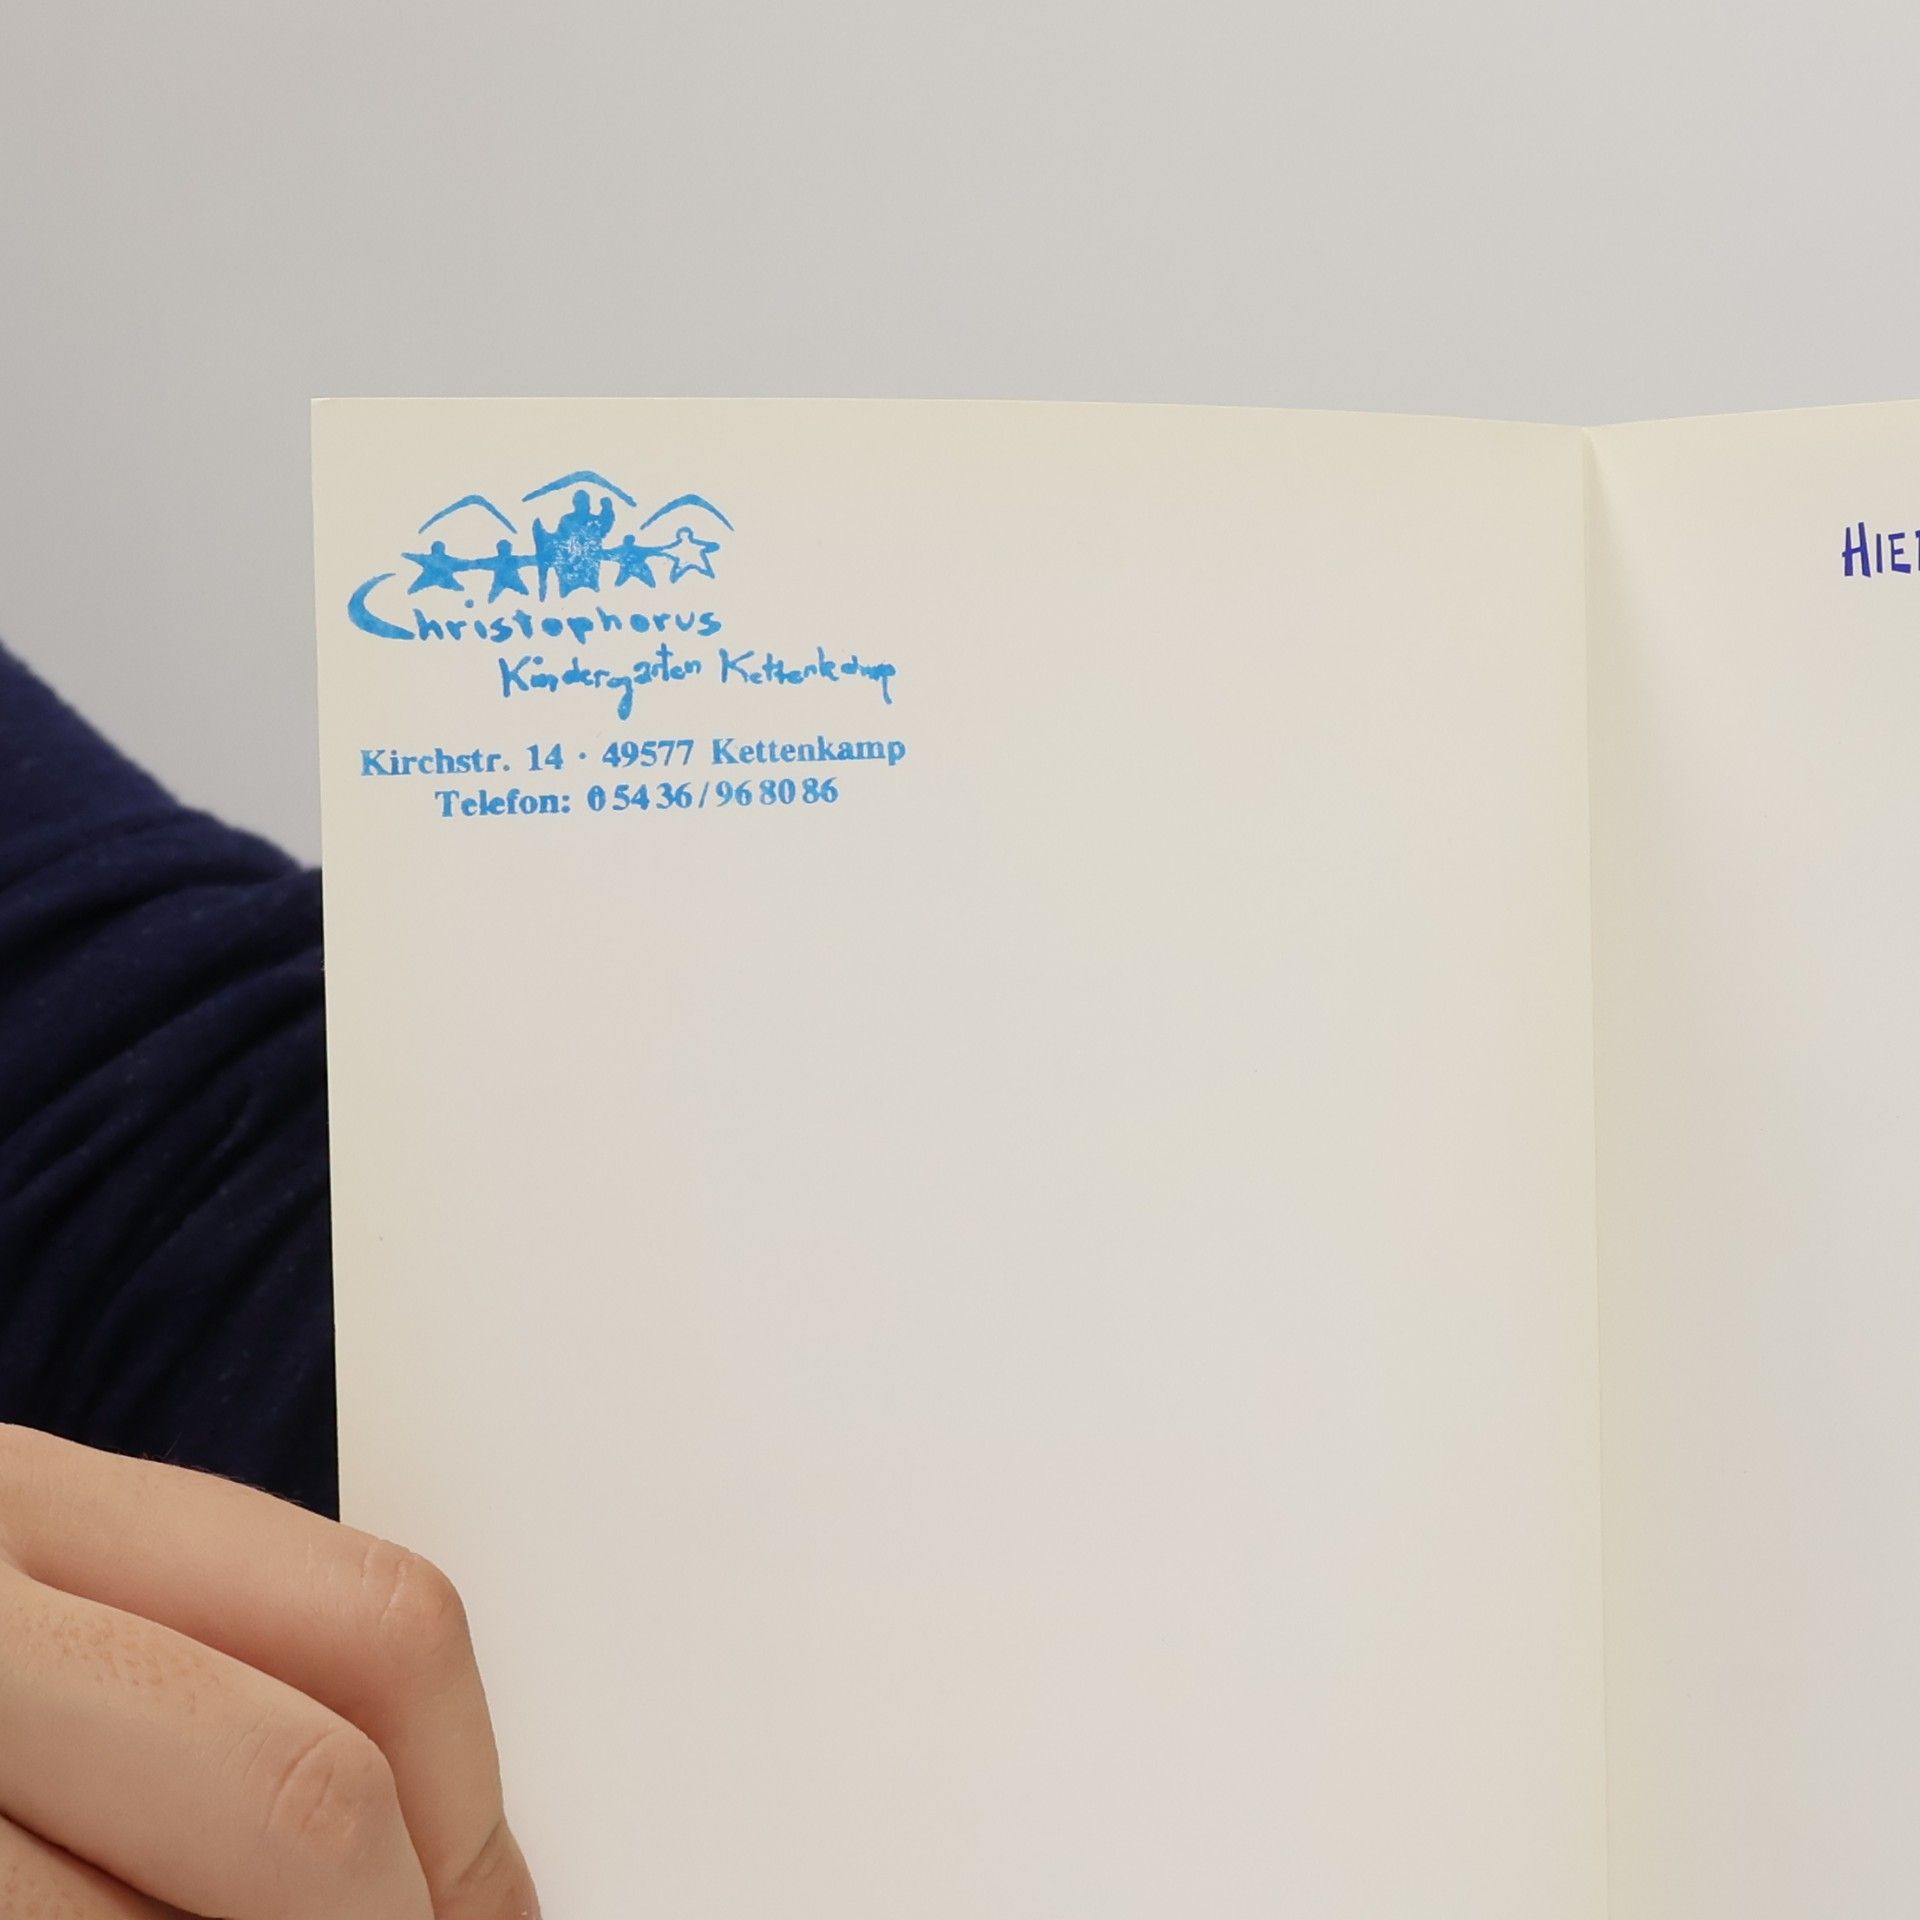 Christophorus
Kindergarten Kettenkamp
Kirchstr. 14 · 49577 Kettenkamp
Telefon: 0 54 36 / 96 80 86